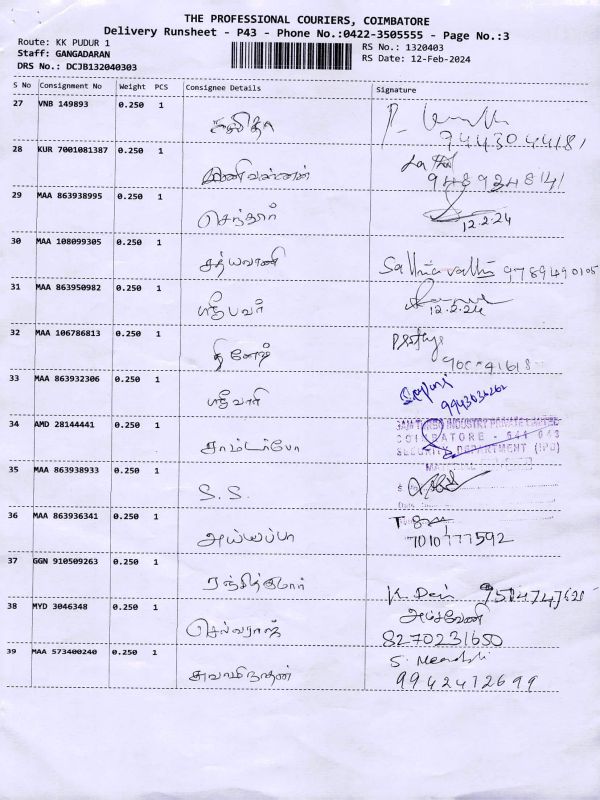 THE PROFESSIONAL COURIERS, COIMBATORE
Delivery Runsheet - P43 - Phone No.:0422-3505555 - Page No.:3
Route: KK PUDUR 1
Staff: GANGADARAN
DRS No.: DCJB132040303
RS No.: 1320403
RS Date: 12-Feb-2024
S No Consignment No Weight PCS Consignee Details Signature
27 VNB 149893 0.250 1 கவிதா
7443044181
28 KUR 7001081387 0.250 1 மணிவண்ணன்
9489234841
29 MAA 863938995 0.250 1 செந்தூர்
12.2.24
30 MAA 108099305 0.250 1 சத்யவாணி Sathiavathi 9789490105
31 MAA 863950982 0.250 1
12.2.24
32 MAA 106786813 0.250 1 தினேஷ்
33 MAA 863932306 0.250 1 ஸ்ரீவாரி
9943036262
34 AMD 28144441 0.250 1 சாம்டர்போ
INDUSTRY PRIVATE LIMITED
COIMBATORE - 641 043
SECURITY DEPARTMENT (IPU)
35 MAA 863938933 0.250 1 S.S.
36 MAA 863936341 0.250 1 அய்யப்பா
7010777592
37 GGN 910509263 0.250 1 ரஞ்சித்குமார்
K. Devi
38 MYD 3046348 0.250 1 செல்வராஜ்
8270231650
39 MAA 573400240 0.250 1 சுவாமிநாதன்
9942412699